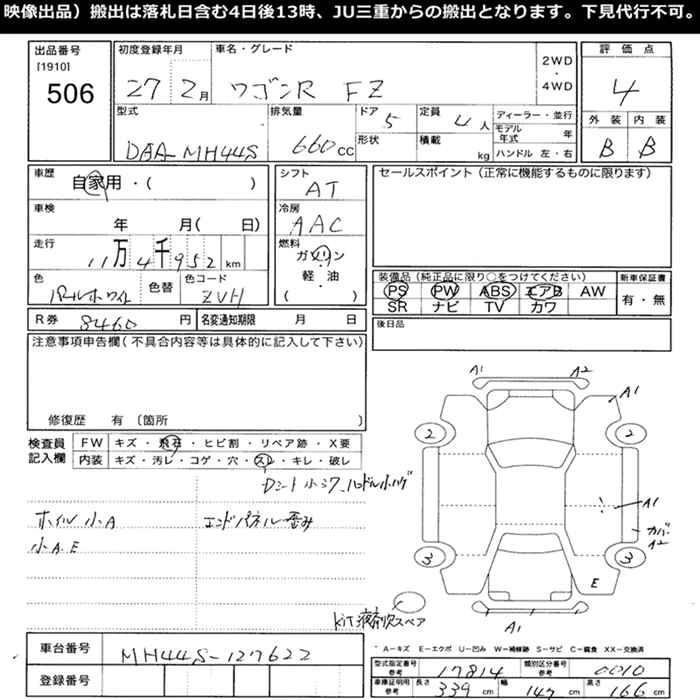 映像出品）搬出は落札日含む4日後13時、JU三重からの搬出となります。下見代行不可。
出品番号
[1910]
506
初度登録年月
27 2月
車名・グレード
ワゴンR FZ
2WD
・
4WD
評価点
4
型式
DAA-MH44S
排気量
660cc
ドア 5
形状
定員 4人
積載 kg
ディーラー・並行
モデル年式 年
ハンドル 左・右
外装 内装
B B
車歴
自家用・( )
シフト
AT
セールスポイント（正常に機能するものに限ります）
車検
年 月( 日)
冷房
AAC
走行
11万4千952 km
燃料
ガソリン
・
軽・油
( )
色
パールホワイト
色替
色コード
ZVH
装備品（純正品に限り○をつけてください）
新車保証書
PS PW ABS エアB AW
有・無
SR ナビ TV カワ
R券 8460円
名変通知期限 月 日
後日品
注意事項申告欄（不具合内容等は具体的に記入して下さい）
修復歴 有 〔箇所 〕
検査員
記入欄
FW キズ・飛石・ヒビ割・リペア跡・X要
内装 キズ・汚レ・コゲ・穴・スレ・キレ・破レ
Dシート小シワ、ハンドル小ハゲ
ホイル小A
エンドパネル歪み
小A.E
A1 A2
A1
2 2
A1
カバー
A2
3 3
E
A1
Kit 液剤欠 スペア
A－キズ E－エクボ U－凹み W－補修跡 S－サビ C－腐食 XX－交換済
車台番号
MH44S-127622
登録番号
型式指定番号
参考
17814
類別区分番号
参考
0010
車庫証明用
参考
長さ 339 cm
幅 147 cm
高さ 166 cm